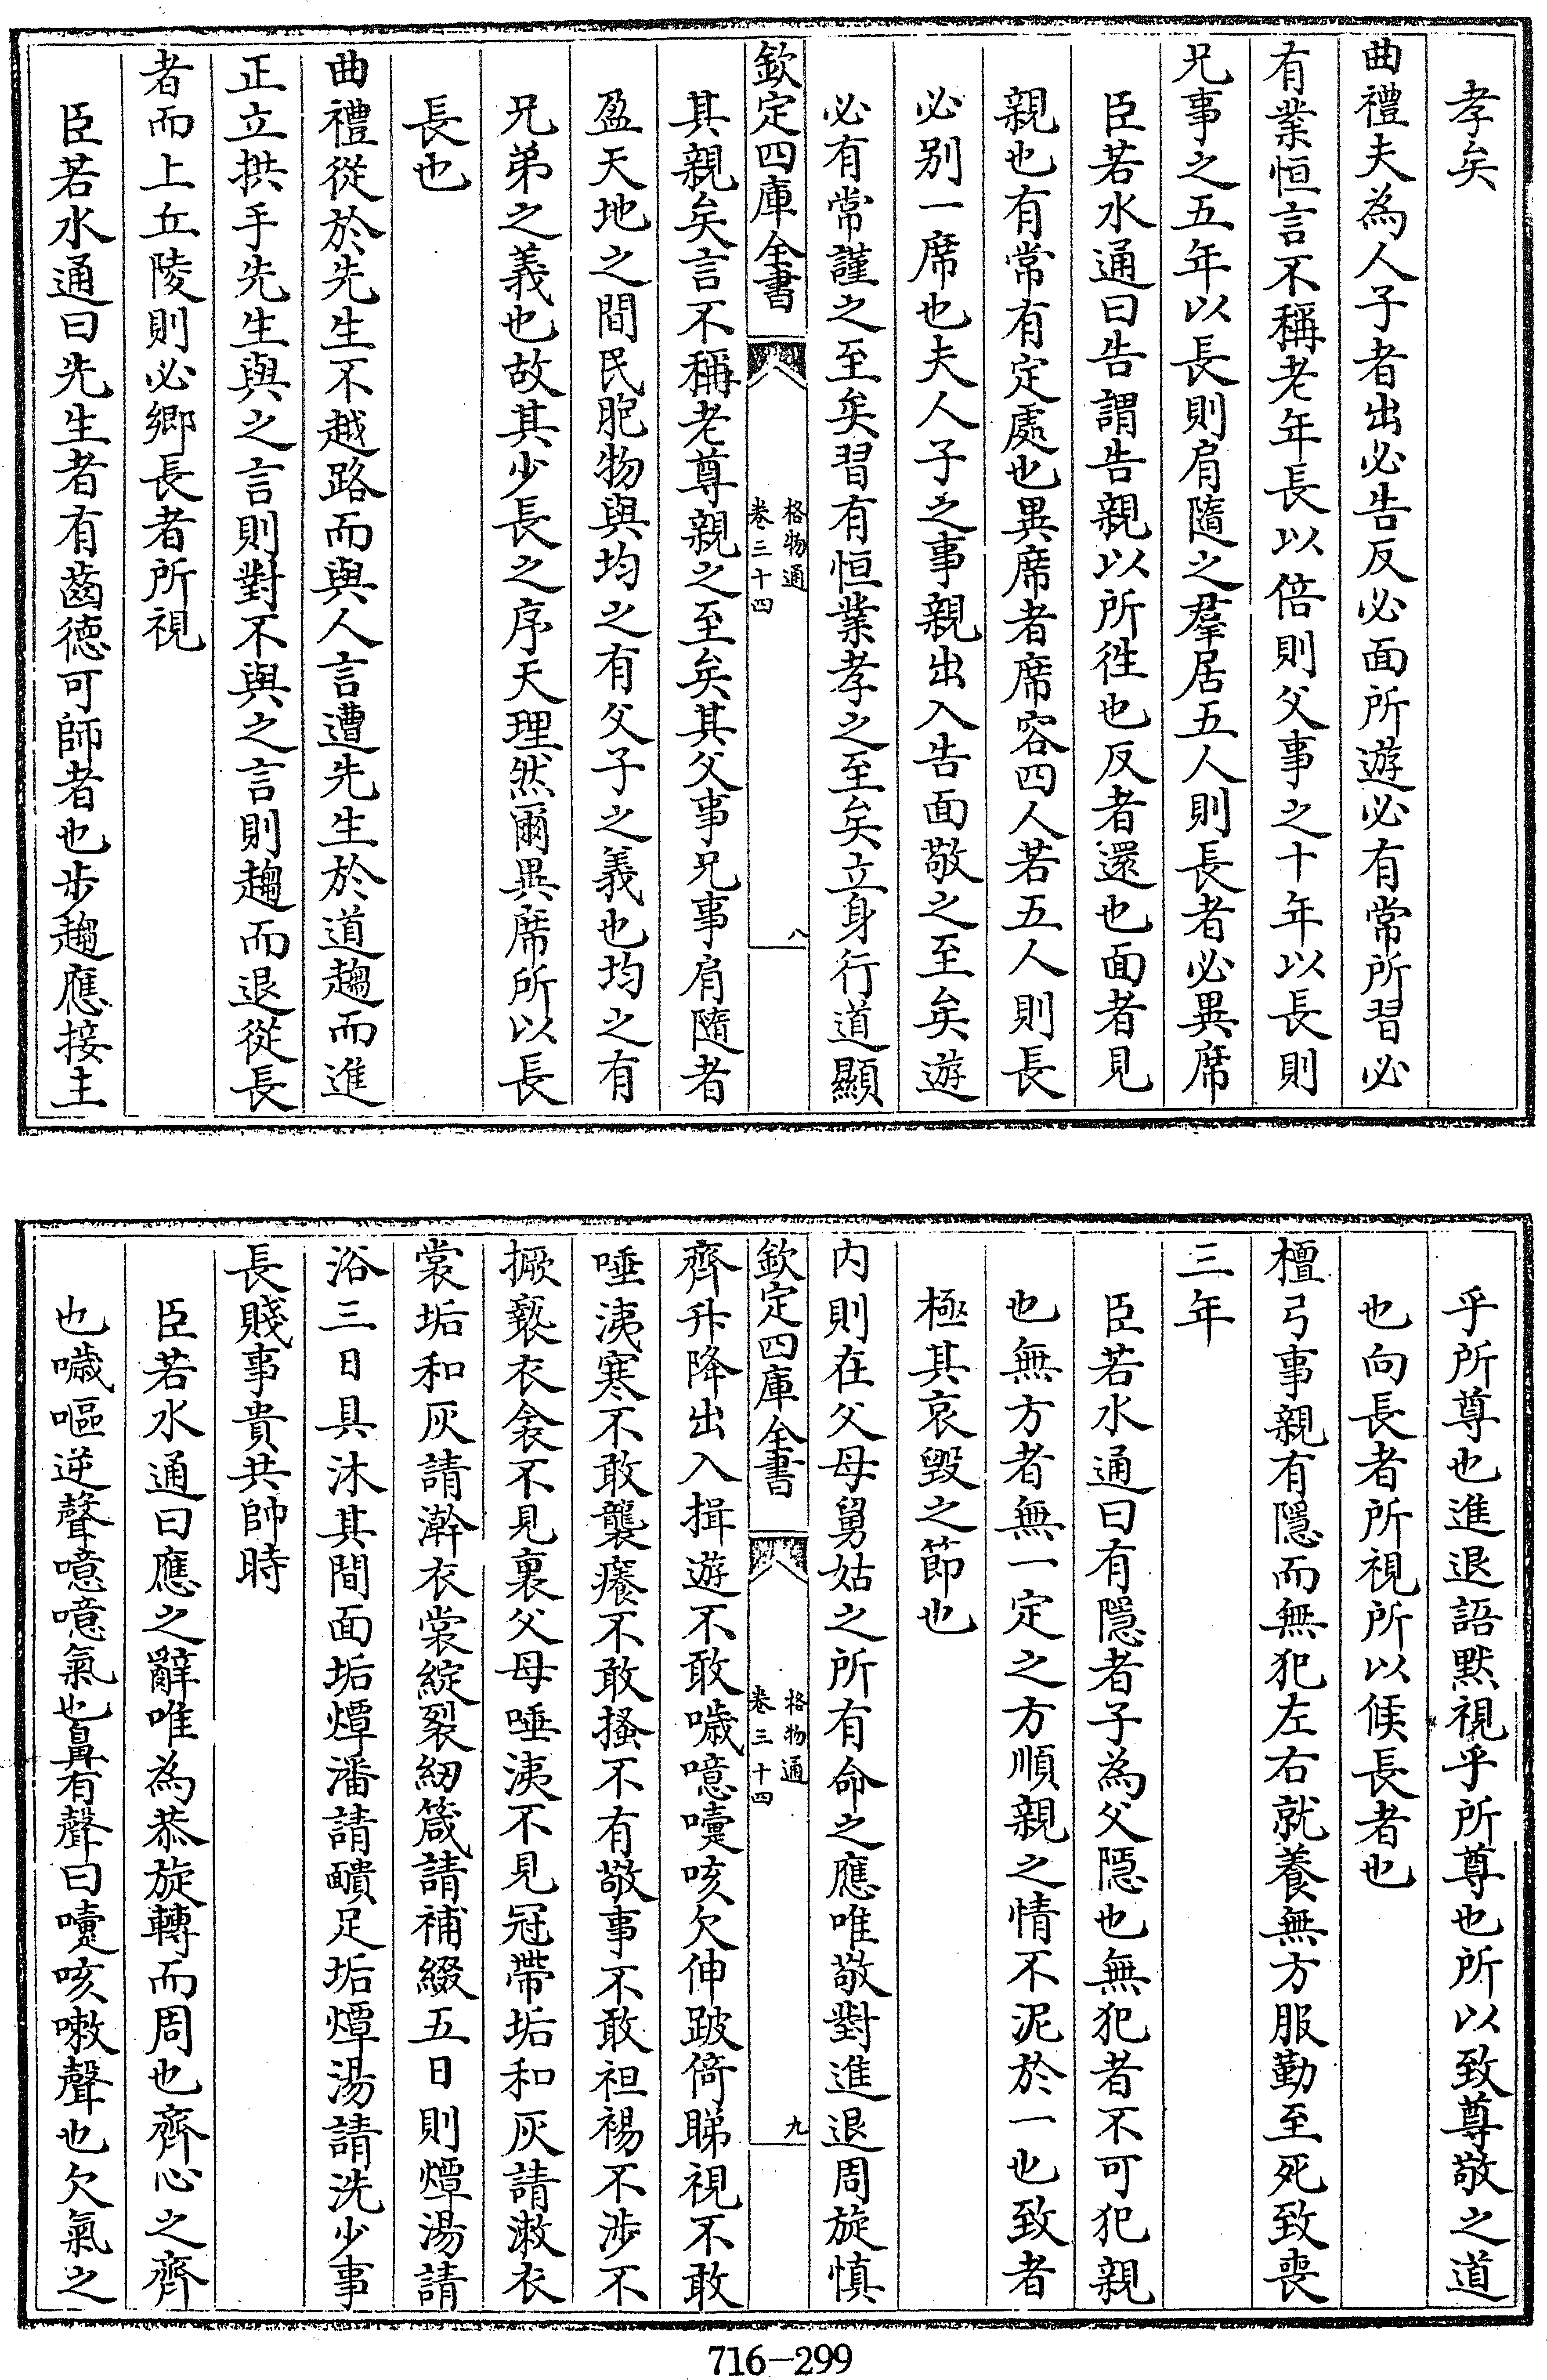 孝矣
曲禮夫為人子者出必告反必面所遊必有常所習必
有業恒言不稱老年長以倍則父事之十年以長則
兄事之五年以長則肩隨之羣居五人則長者必異席
臣若水通曰告謂告親以所徃也反者還也面者見
親也有常有定處也異席者席容四人若五人則長
必别一席也夫人子之事親出入告面敬之至矣遊
必有常謹之至矣習有恒業孝之至矣立身行道顯
欽定四庫全書
格物通
卷三十四
八
其親矣言不稱老尊親之至矣其父事兄事肩隨者
盈天地之間民胞物與均之有父子之義也均之有
兄弟之義也故其少長之序天理然爾異席所以長
長也
曲禮從於先生不越路而與人言遭先生於道趨而進
正立拱手先生與之言則對不與之言則趨而退從長
者而上丘陵則必鄉長者所視
臣若水通曰先生者有齒德可師者也步趨應接主
乎所尊也進退語默視乎所尊也所以致尊敬之道
也向長者所視所以候長者也
檀弓事親有隱而無犯左右就養無方服勤至死致喪
三年
臣若水通曰有隱者子為父隱也無犯者不可犯親
也無方者無一定之方順親之情不泥於一也致者
極其哀毀之節也
内則在父母舅姑之所有命之應唯敬對進退周旋慎
欽定四庫全書
格物通
卷三十四
九
齊升降出入揖遊不敢噦噫嚏咳欠伸跛倚睇視不敢
唾洟寒不敢襲癢不敢搔不有敬事不敢袒裼不涉不
撅褻衣衾不見裏父母唾洟不見冠帶垢和灰請漱衣
裳垢和灰請澣衣裳綻裂紉箴請補綴五日則燂湯請
浴三日具沐其間面垢燂潘請靧足垢燂湯請洗少事
長賤事貴共帥時
臣若水通曰應之辭唯為恭旋轉而周也齊心之齊
也噦嘔逆聲噫噫氣也鼻有聲曰嚏咳嗽聲也欠氣之
716-299